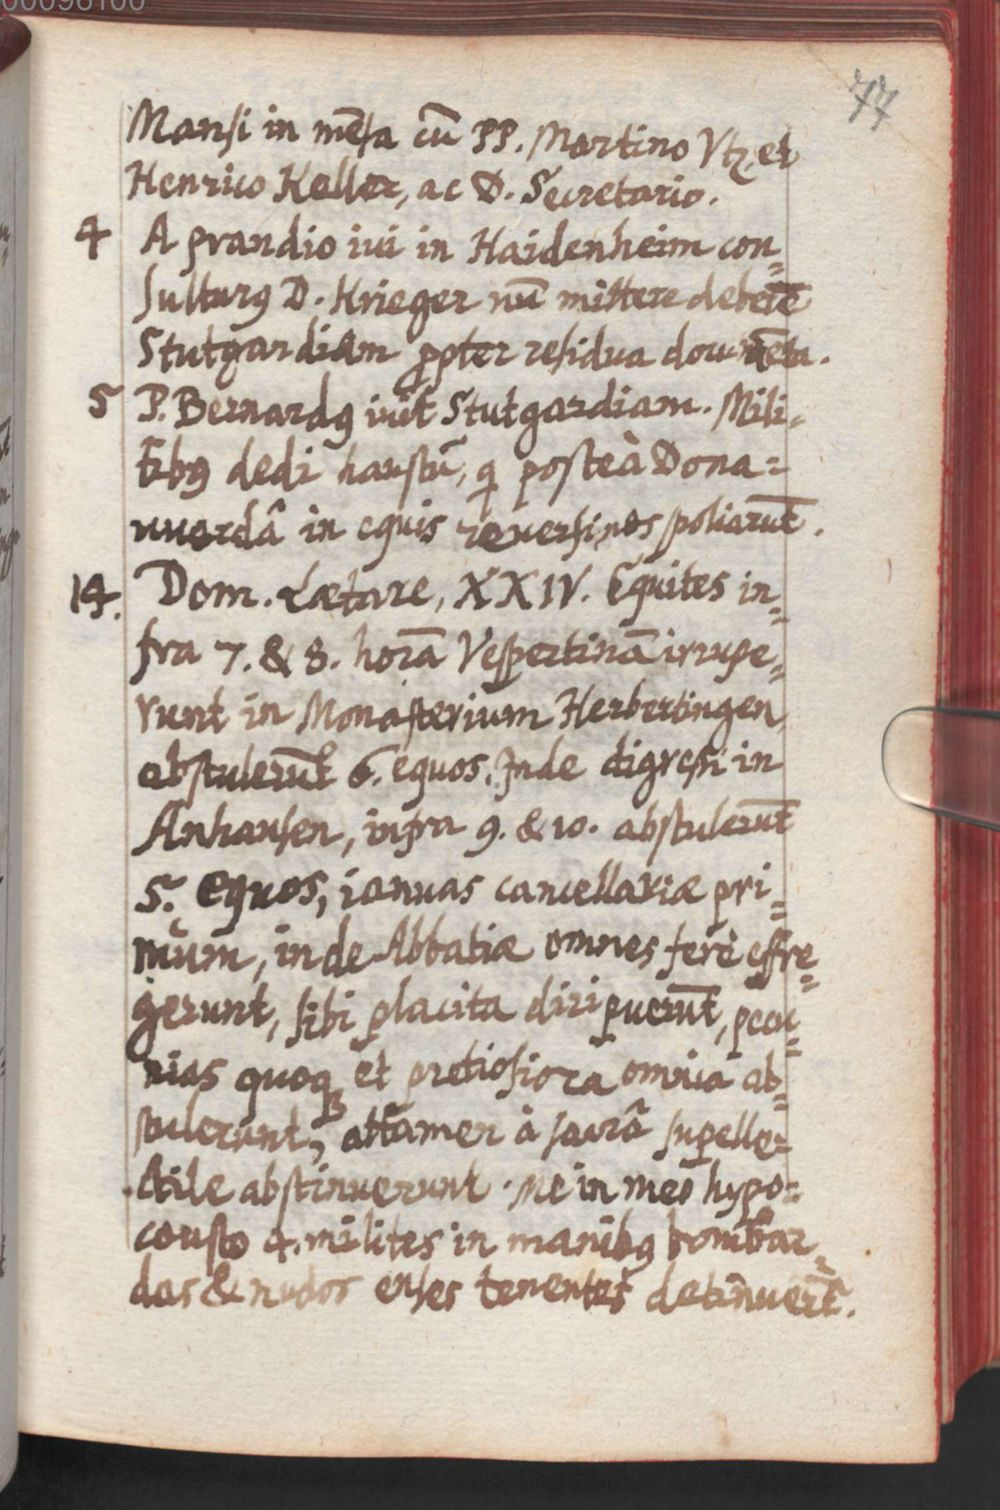 00098100
77
Mansi in mēsa cū PP. Martino Vtz et
Henrico Keller, ac D. Secretario.
4 A prandio ivi in Haidenheim con=
sulturꝯ D. Krieger nū mittere deberē
Stutgardiam ꝓpter residua documēta.
5 P. Bernardꝯ ivit Stutgardiam. Mili=
tibꝯ dedi haustū, q posteà Dona=
uuerdâ in equis reversi, nos spoliarūt.
14. Dom. Lætare, XXIV. Equites in=
fra 7. & 8. horā Vespertinā irrupe=
runt in Monasterium Herbertingen,
abstulerūt 6. equos. Inde digressi in
Anhausen, infra 9. & 10. abstulerūt
5. equos, ianuas cancellariæ pri=
mùm, inde Abbatiæ omnes ferè effre=
gerunt, sibi placita diripuerūt, pecu=
nias quoqꝫ et pretiosiora omnia ab=
stulerunt, attamen à sacrâ supelle=
ctile abstinuerunt. Me in meo hypo=
causto 4. milites in manibꝯ bombar=
das & nudos enses tenentes detinuerūt.